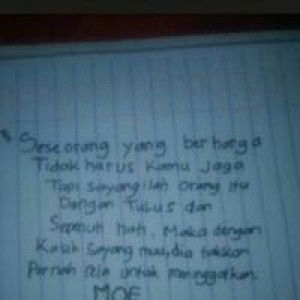 Seseorang yang berharga
Tidak harus kamu Jaga
Tapi sayangilah orang itu
Dangan Tulus dan
Sepenuh hati, Maka dengan
Kasih Sayang muu, dia takkan
Pernah rela untuk meninggalkan
MOE